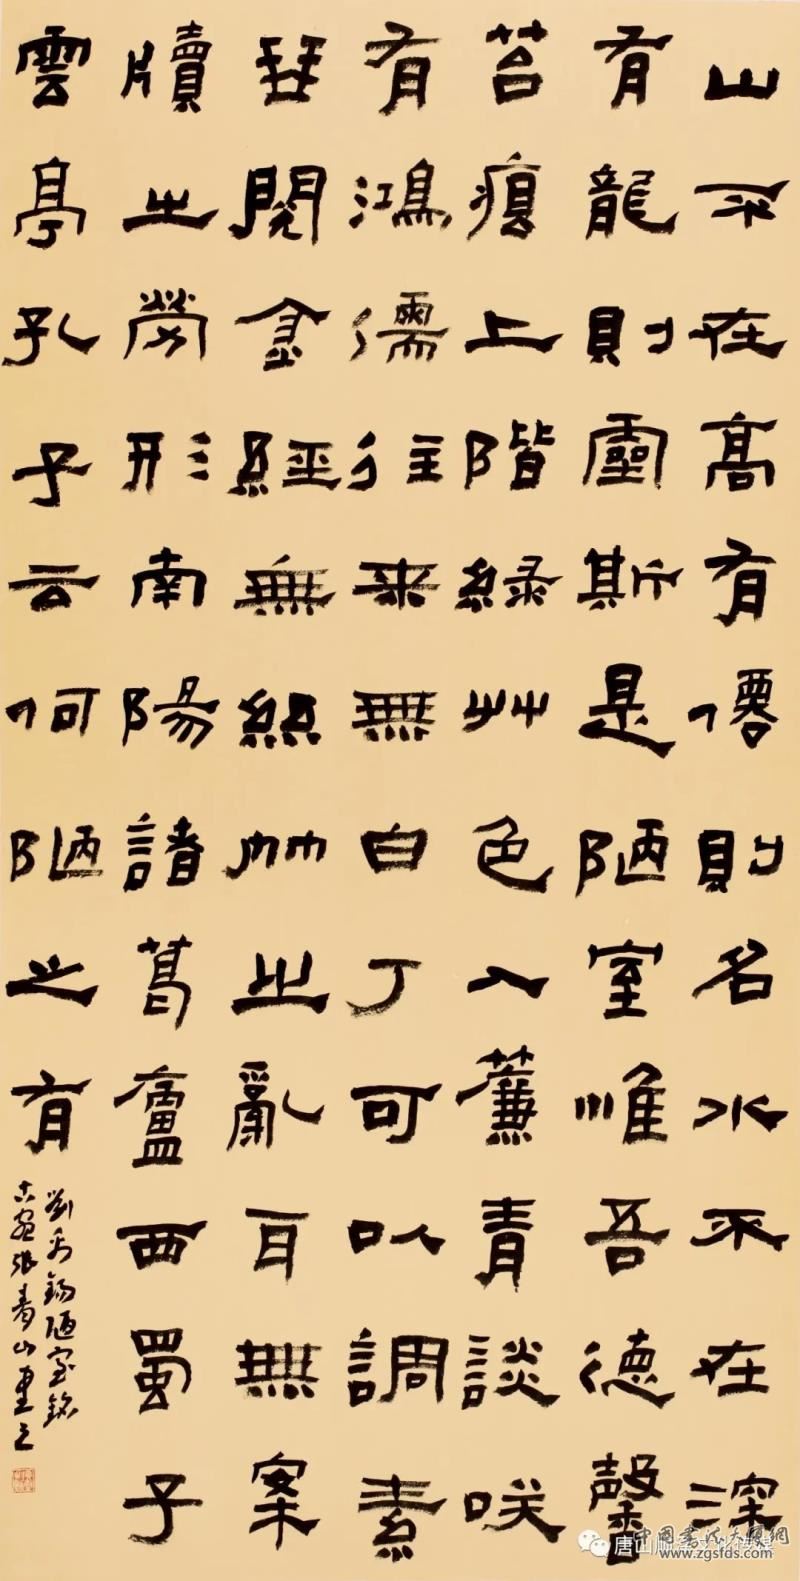 山不在高有僊則名水不在深
有龍則靈斯是陋室唯吾德馨
苔痕上階綠艸色入簾青談咲
有鴻儒往来無白丁可以調素
琴閱金經無絲竹之亂耳無案
牘之勞形南陽諸葛廬西蜀子
雲亭孔子云何陋之有
劉禹錫陋室銘
古冶張青山書之
中國書法大厦網
唐山
www.zgsfds.com